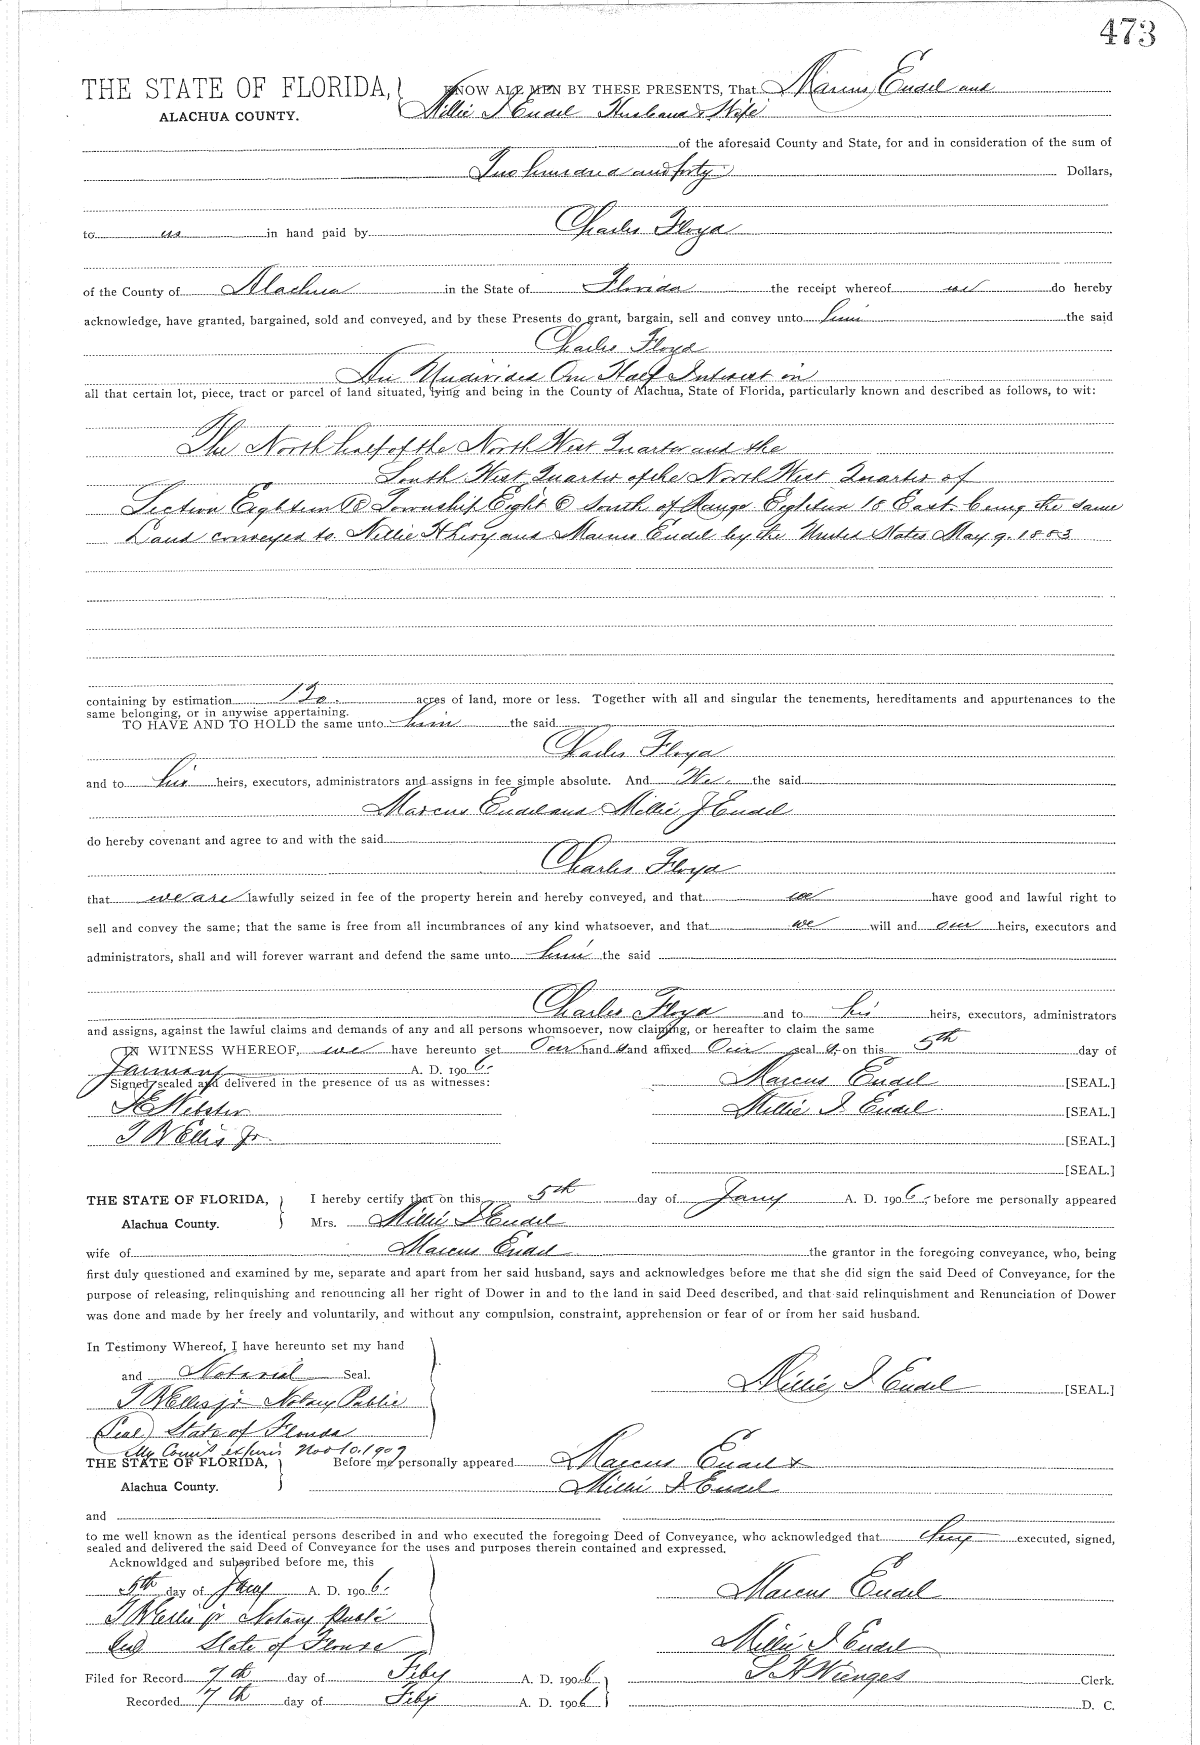 473
THE STATE OF FLORIDA, KNOW ALL MEN BY THESE PRESENTS, That Marcus Endel and
ALACHUA COUNTY. Millie I Endel Husband & Wife
of the aforesaid County and State, for and in consideration of the sum of
Two hundred and forty Dollars,
to us in hand paid by Charles Floyd
of the County of Alachua in the State of Florida the receipt whereof we do hereby
acknowledge, have granted, bargained, sold and conveyed, and by these Presents do grant, bargain, sell and convey unto him the said
Charles Floyd
An Undivided One Half Interest in
all that certain lot, piece, tract or parcel of land situated, lying and being in the County of Alachua, State of Florida, particularly known and described as follows, to wit:
The North half of the North West Quarter and the
South West Quarter of the North West Quarter of
Section Eighteen Township Eight South of Range Eighteen 18 East being the same
Land conveyed to and Marcus Endel by the United States May 9. 1883
containing by estimation 120 acres of land, more or less. Together with all and singular the tenements, hereditaments and appurtenances to the
same belonging, or in anywise appertaining.
TO HAVE AND TO HOLD the same unto him the said
Charles Floyd
and to his heirs, executors, administrators and assigns in fee simple absolute. And We the said
Marcus Endel and Millie I Endel
do hereby covenant and agree to and with the said
Charles Floyd
that we are lawfully seized in fee of the property herein and hereby conveyed, and that we have good and lawful right to
sell and convey the same; that the same is free from all incumbrances of any kind whatsoever, and that we will and our heirs, executors and
administrators, shall and will forever warrant and defend the same unto him the said
Charles Floyd and to his heirs, executors, administrators
and assigns, against the lawful claims and demands of any and all persons whomsoever, now claiming, or hereafter to claim the same
IN WITNESS WHEREOF, we have hereunto set Our hands and affixed Our seals, on this 5th day of
January A. D. 1906.
Signed, sealed and delivered in the presence of us as witnesses: Marcus Endel [SEAL.]
Webster Millie I. Endel. [SEAL.]
T W Ellis Jr. [SEAL.]
[SEAL.]
THE STATE OF FLORIDA, I hereby certify that on this 5th day of Jany A. D. 1906, before me personally appeared
Alachua County. Mrs. Millie I Endel
wife of Marcus Endel the grantor in the foregoing conveyance, who, being
first duly questioned and examined by me, separate and apart from her said husband, says and acknowledges before me that she did sign the said Deed of Conveyance, for the
purpose of releasing, relinquishing and renouncing all her right of Dower in and to the land in said Deed described, and that said relinquishment and Renunciation of Dower
was done and made by her freely and voluntarily, and without any compulsion, constraint, apprehension or fear of or from her said husband.
In Testimony Whereof, I have hereunto set my hand
and Notarial Seal.
T W Ellis jr Notary Public Millie I Endel [SEAL.]
(Seal) State of Florida
My Com. expires Nov 10. 1909
THE STATE OF FLORIDA, Before me personally appeared Marcus Endel &
Alachua County. Millie I Endel
and
to me well known as the identical persons described in and who executed the foregoing Deed of Conveyance, who acknowledged that they executed, signed,
sealed and delivered the said Deed of Conveyance for the uses and purposes therein contained and expressed.
Acknowldged and subscribed before me, this
5th day of Jany A. D. 1906. Marcus Endel
T W Ellis jr Notary Public
Seal State of Florida Millie I Endel
Filed for Record 7th day of Feby A. D. 1906 S H Wienges Clerk.
Recorded 7th day of Feby A. D. 1906 D. C.